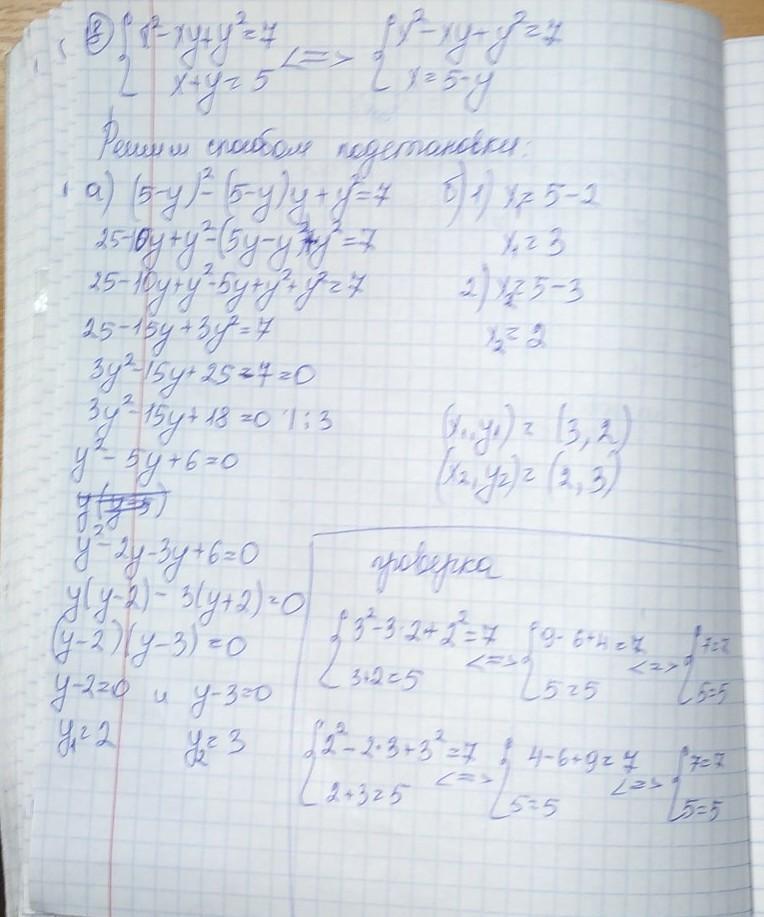 ⑧ { x²-xy+y²=7 <=> { x²-xy+y²=7
x+y=5 x=5-y
Решим способом подстановки:
а) (5-y)²-(5-y)y+y²=7
25-10y+y²-(5y-y²)+y²=7
25-10y+y²-5y+y²+y²=7
25-15y+3y²=7
3y²-15y+25-7=0
3y²-15y+18=0 |:3
y²-5y+6=0
y(y-5)
y²-2y-3y+6=0
y(y-2)-3(y+2)=0
(y-2)(y-3)=0
y-2=0 и y-3=0
y₁=2 y₂=3
б) 1) x₁=5-2
x₁=3
2) x₂=5-3
x₂=2
(x₁,y₁)=(3,2)
(x₂,y₂)=(2,3)
проверка
{ 3²-3·2+2²=7 <=> { 9-6+4=7 <=> { 7=7
3+2=5 5=5 5=5
{ 2²-2·3+3²=7 <=> { 4-6+9=7 <=> { 7=7
2+3=5 5=5 5=5